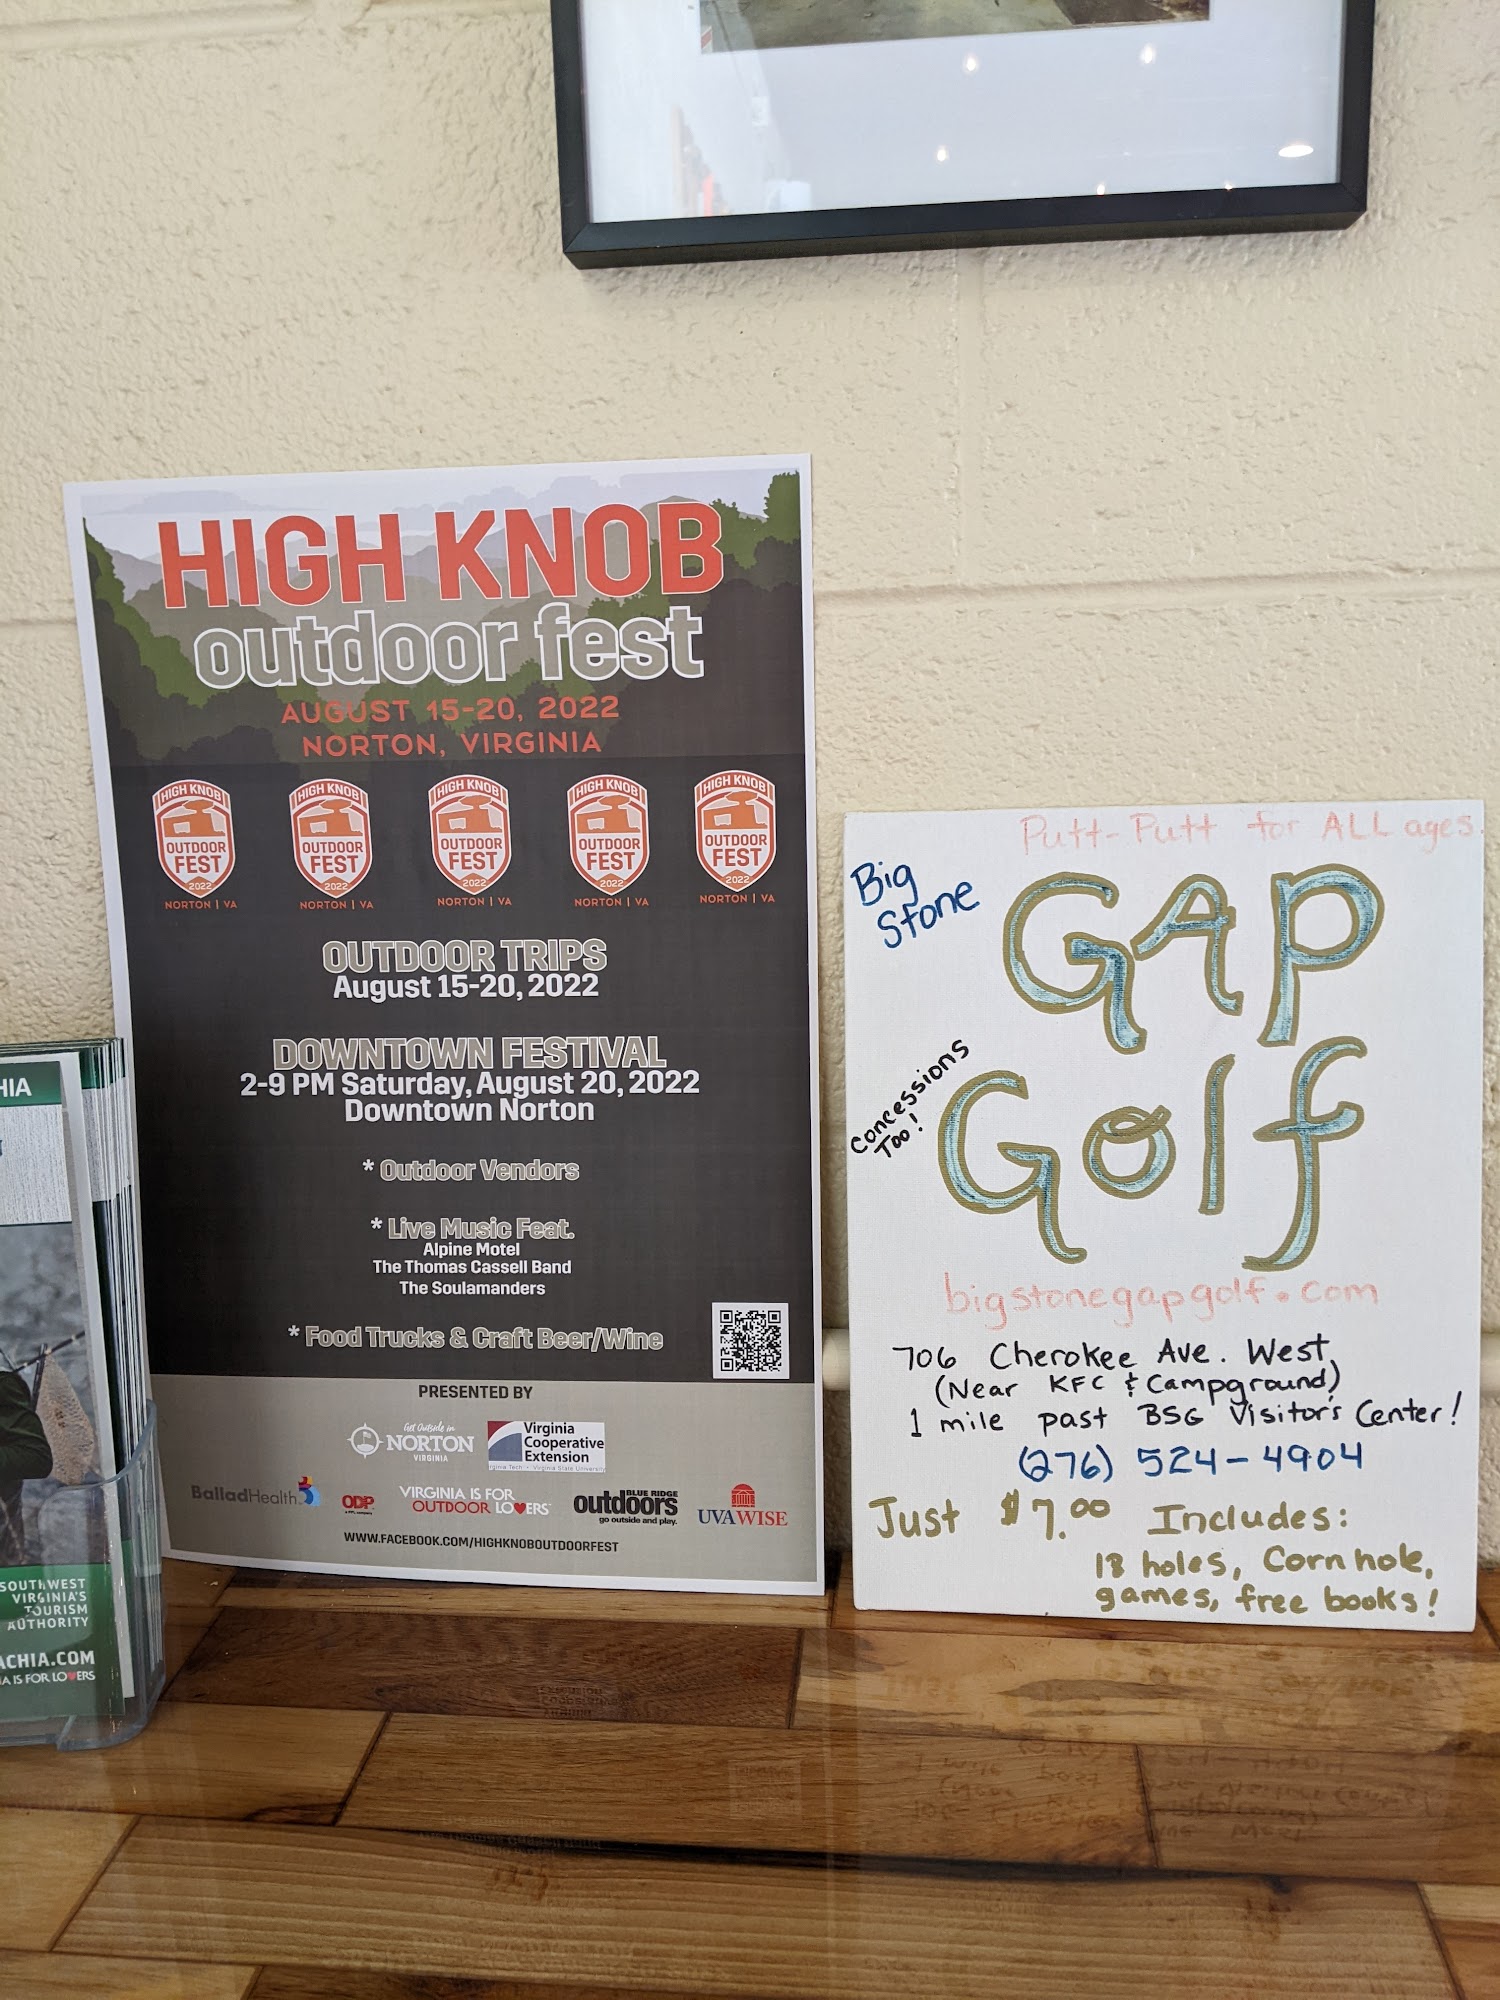 HIGH KNOB
outdoor fest
AUGUST 15-20, 2022
NORTON, VIRGINIA
HIGH KNOB
OUTDOOR
FEST
2022
NORTON | VA
HIGH KNOB
OUTDOOR
FEST
2022
NORTON | VA
HIGH KNOB
OUTDOOR
FEST
2022
NORTON | VA
HIGH KNOB
OUTDOOR
FEST
2022
NORTON | VA
HIGH KNOB
OUTDOOR
FEST
2022
NORTON | VA
OUTDOOR TRIPS
August 15-20, 2022
DOWNTOWN FESTIVAL
2-9 PM Saturday, August 20, 2022
Downtown Norton
* Outdoor Vendors
* Live Music Feat.
Alpine Motel
The Thomas Cassell Band
The Soulamanders
* Food Trucks & Craft Beer/Wine
PRESENTED BY
Get Outside in
NORTON
VIRGINIA
Virginia
Cooperative
Extension
Virginia Tech • Virginia State University
BalladHealth
ODP
VIRGINIA IS FOR
OUTDOOR LOVERS
BLUE RIDGE
outdoors
go outside and play.
UVAWISE
WWW.FACEBOOK.COM/HIGHKNOBOUTDOORFEST
Putt-Putt for ALL ages.
Big
Stone
GAP
Concessions
Too!
Golf
bigstonegapgolf.com
706 Cherokee Ave. West
(Near KFC & Campground)
1 mile past BSG Visitor's Center!
(276) 524-4904
Just $7.00 Includes:
18 holes, Cornhole,
games, free books!
HIA
SOUTHWEST
VIRGINIA'S
TOURISM
AUTHORITY
ACHIA.COM
IA IS FOR LOVERS